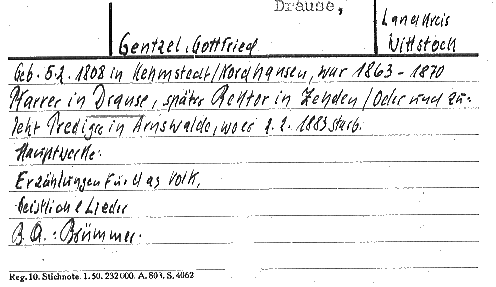 Drause,
Landkreis
Wittstock
Gentzel, Gottfried
Geb. 5.2. 1808 in Kehmstedt/Nordhausen, war 1863-1870
Pfarrer in Drause, später Rektor in Zehden/Oder und zu-
letzt Prediger in Arnswalde, wo er 2.2. 1883 starb.
Hauptwerke:
Erzählungen für das Volk,
Geistliche Lieder
B.A.: Brümmer.
Reg. 10. Stichnote. 1. 50. 232000. A. 803. S. 4062